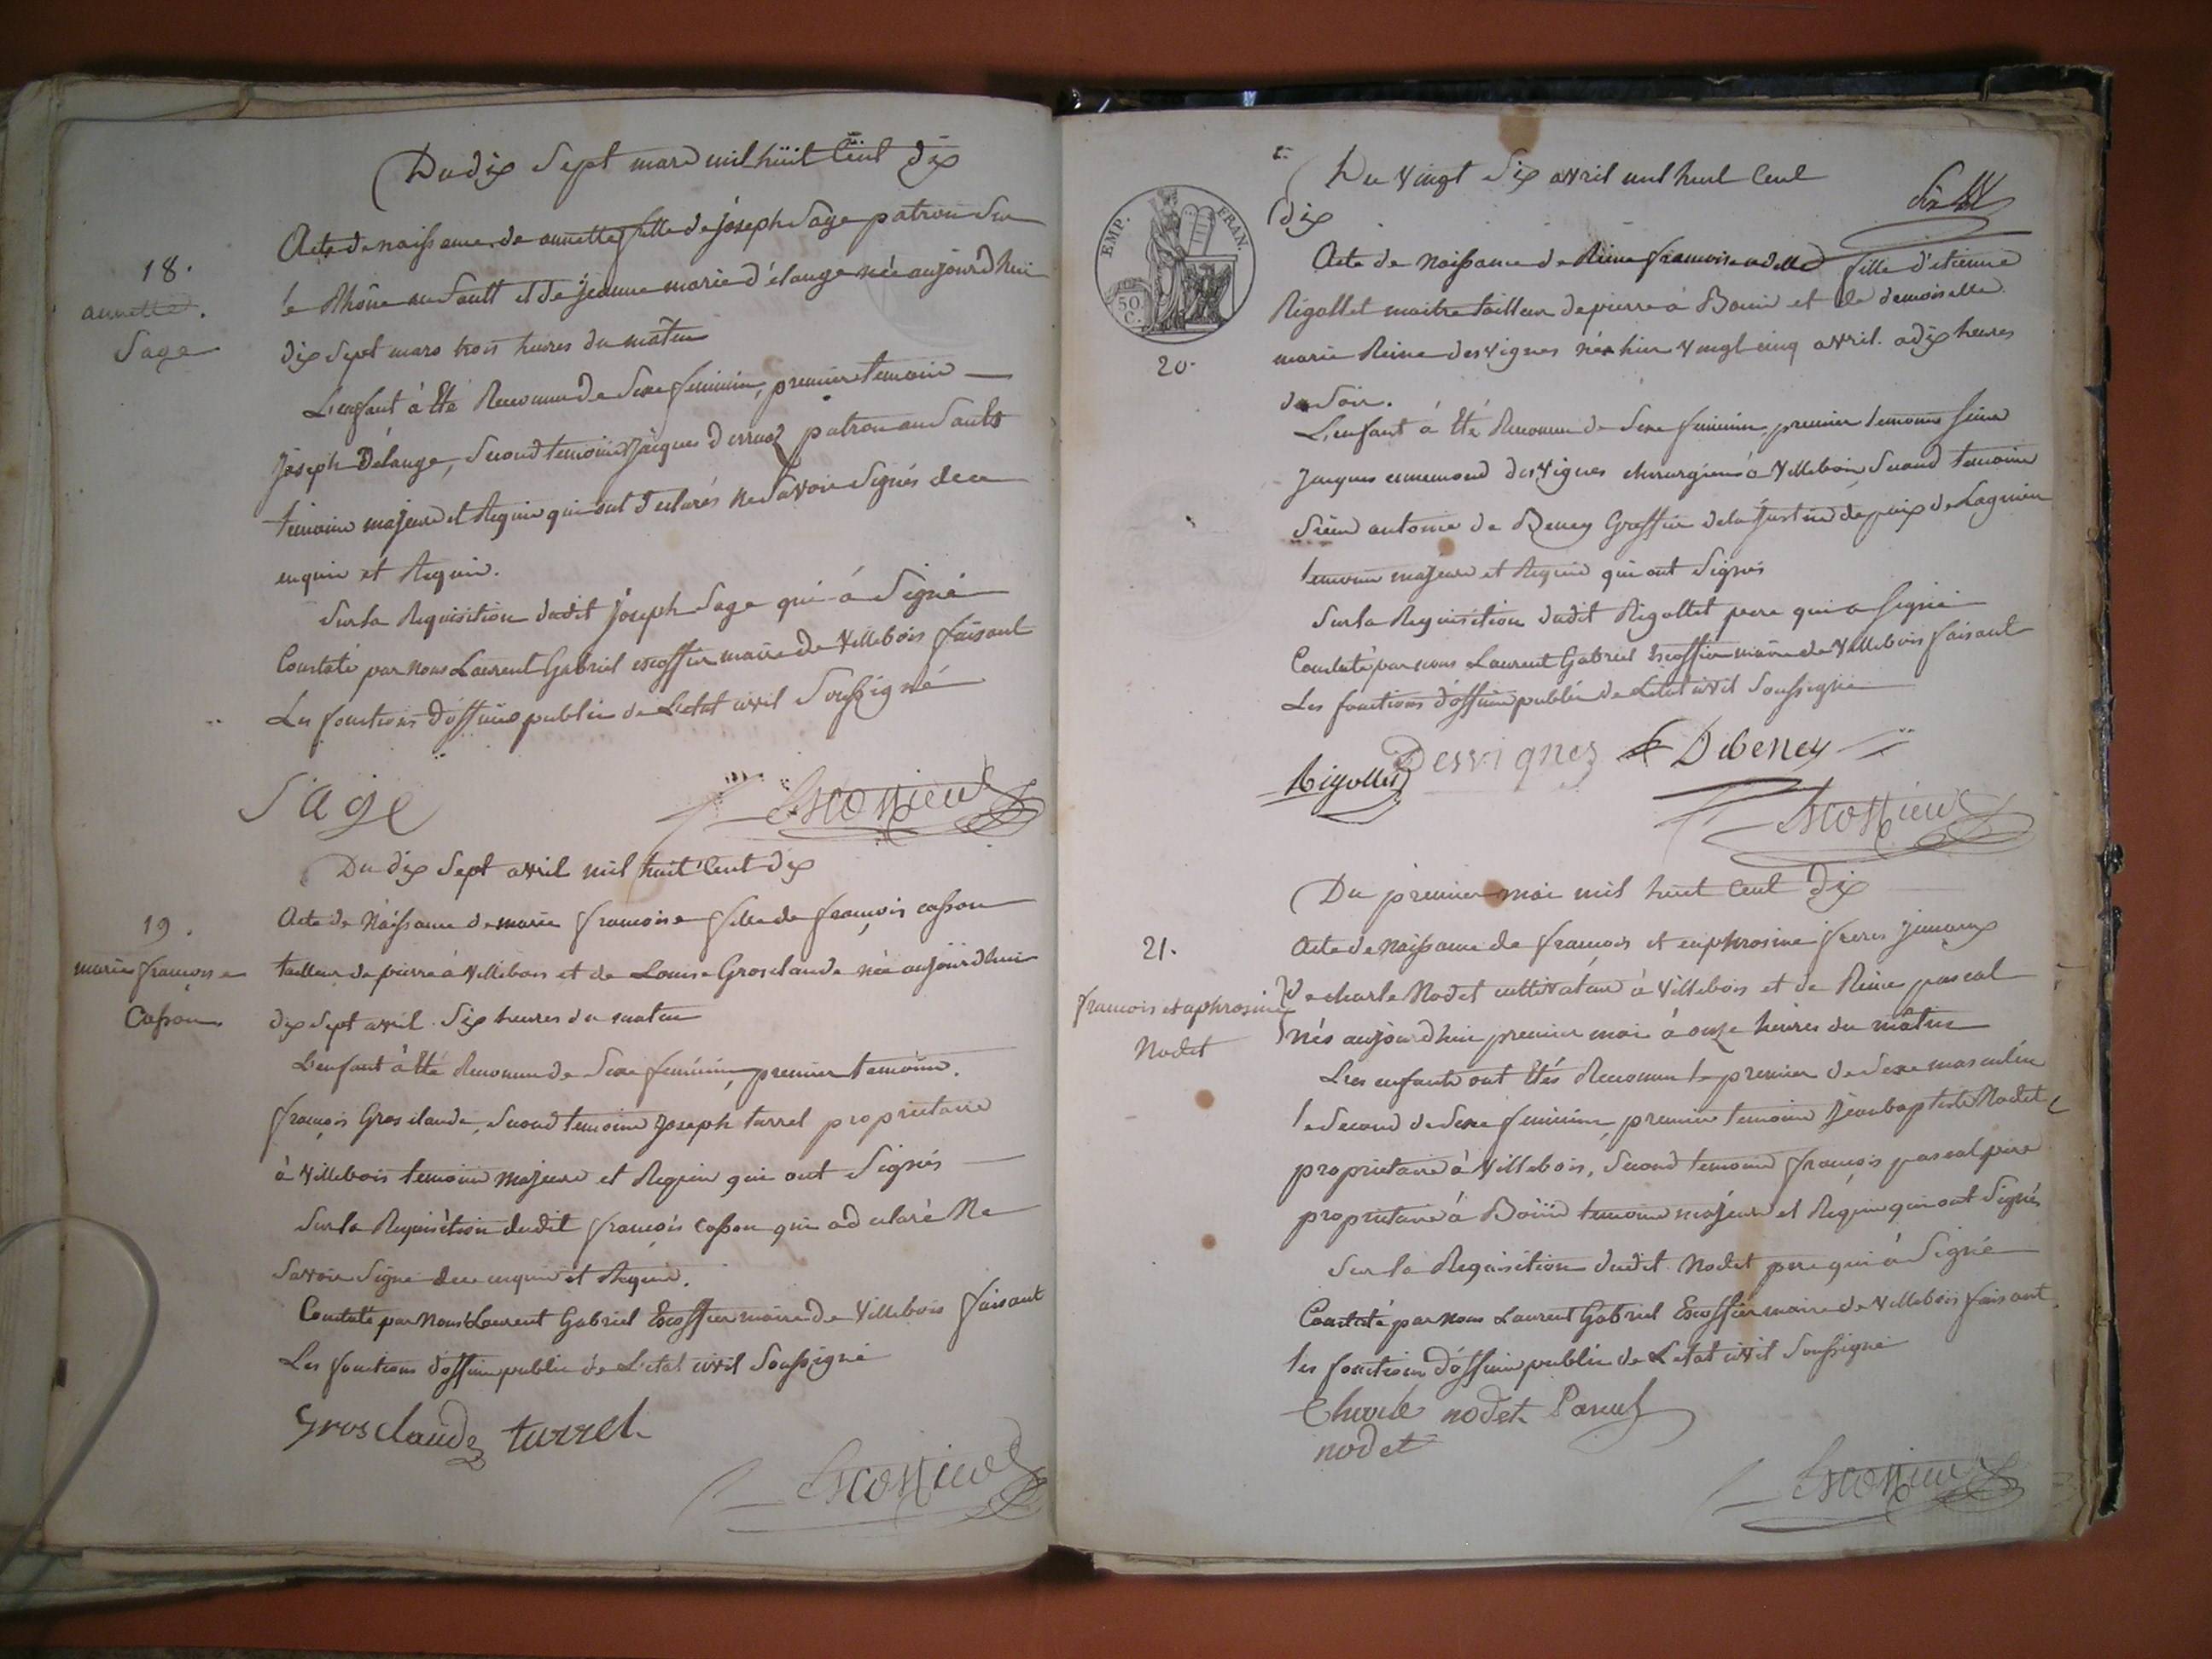 Du dix Sept mars mil hüit Cent dix
18.
annette
Sage
Acte de naissance de annette fille de joseph Sage patron Sur
le Rhône au Sault et de jeanne marie d'élange née aujourd'hui
dix Sept mars trois heures du matin
L'enfant à Eté Reconnu de Sexe feminin, premier temoin
joseph Délange, Second temoin jacques derruaz patron au Sault
temoins majeurs et Requis qui ont declarés ne Savoir Signés de ce
enquis et Requis.
Sur la Requisition dudit joseph Sage qui à Signé
Constaté par nous Laurent Gabriel escoffier maire de Villebois faisant
Les fonctions d'officier public de L'etat civil Soussigné
Sage Escoffier
Du dix Sept avril mil huit Cent dix
19.
marie francoise
Casson
Acte de Naissance de marie francoise fille de françois casson
tailleur de pierre à Villebois et de Louise Grosclaude née aujourd'hui
dix Sept avril Six heures du matin
L'enfant à Eté Reconnu de Sexe feminin, premier temoin.
françois Grosclaude, Second temoin joseph turrel proprietaire
à Villebois temoins majeurs et Requis qui ont Signés
Sur la Requisition dudit françois Casson qui a declaré Ne
Savoir Signé de ce enquis et Requis.
Constaté par Nous Laurent Gabriel Escoffier maire de Villebois faisant
Les fonctions d'officier public de L'etat civil Soussigné
Grosclaude turrel
Escoffier
EMP. FRAN.
50 C.
Du Vingt Six avril mil huit Cent
dix
20.
Acte de Naissance de Reine francoise adelle fille d'etienne
Rigollet maitre tailleur de pierre à Bouis et de demoiselle
marie Reine desvignes née hier Vingt cinq avril a dix heures
du Soir.
L'enfant à Eté Reconnu de Sexe feminin, premier temoin Sieur
jacques ennemond desvignes chirurgien à Villebois, Second temoin
Sieur antoine de Beney Greffier de la justice de paix de Lagnieu
temoins majeurs et Requis qui ont Signés
Sur la Requisition dudit Rigollet pere qui a Signé
Constaté par nous Laurent Gabriel Escoffier maire de Villebois faisant
Les fonctions d'officier public de L'etat civil Soussigné
Rigollet Desvignes Debeney
Escoffier
Du premier mai mil huit Cent dix
21.
francois et aphrosine
Nodet
Acte de Naissance de francois et euphrosine freres jumeaux
de charle Nodet cultivateur à Villebois et de Reine pascal
nés aujourd'hui premier mai à onze heures du matin
Les enfants ont Etés Reconnu le premier de Sexe masculin
le Second de Sexe feminin, premier temoin jean baptiste Nodet
proprietaire à Villebois, Second temoin françois pascal pere
proprietaire à Boüis temoins majeurs et Requis qui ont Signés
Sur la Requisition dudit Nodet pere qui à Signé
Constaté par nous Laurent Gabriel Escoffier maire de Villebois faisant
les fonctions d'officier public de L'etat civil Soussigné
Charle nodet Pascal
nodet
Escoffier